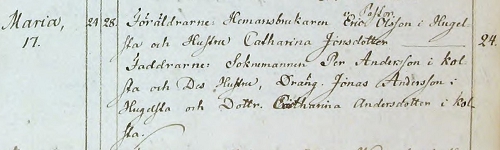 Maria, 24 28. Föräldrarne: Hemansbrukaren Eric Olsson i Hugel
17. sta och Hustru Catharina Jönsdotter 24.
Faddrarne: Soknemannen Per Andersson i kol
sta och Des Hustru, Dräng. Jonas Andersson i
Hugelsta och Dottr. Catharina Andersdotter i kol
sta.